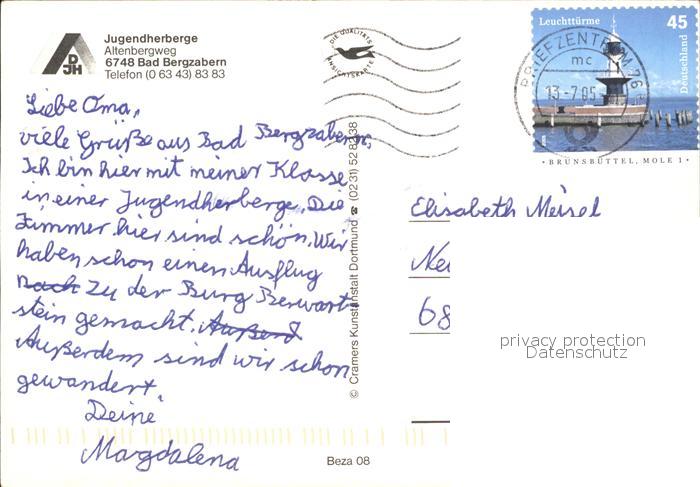 Jugendherberge
Altenbergweg
6748 Bad Bergzabern
Telefon (0 63 43) 83 83
DJH
DIE QUALITÄTS
ANSICHTSKARTE
Leuchttürme 45
Deutschland
BRIEFZENTRUM 76
mc
13.-7.05
· BRUNSBÜTTEL, MOLE 1 ·
Liebe Oma,
viele Grüße aus Bad Bergzabern.
Ich bin hier mit meiner Klasse
in einer Jugendherberge. Die
Zimmer hier sind schön. Wir
haben schon einen Ausflug
nach zu der Burg Berwart-
stein gemacht. Außerd
Außerdem sind wir schon
gewandert.
Deine
Magdalena
© Cramers Kunstanstalt Dortmund ☎ (0231) 528338
Elisabeth Meisel
68
privacy protection
Datenschutz
Beza 08